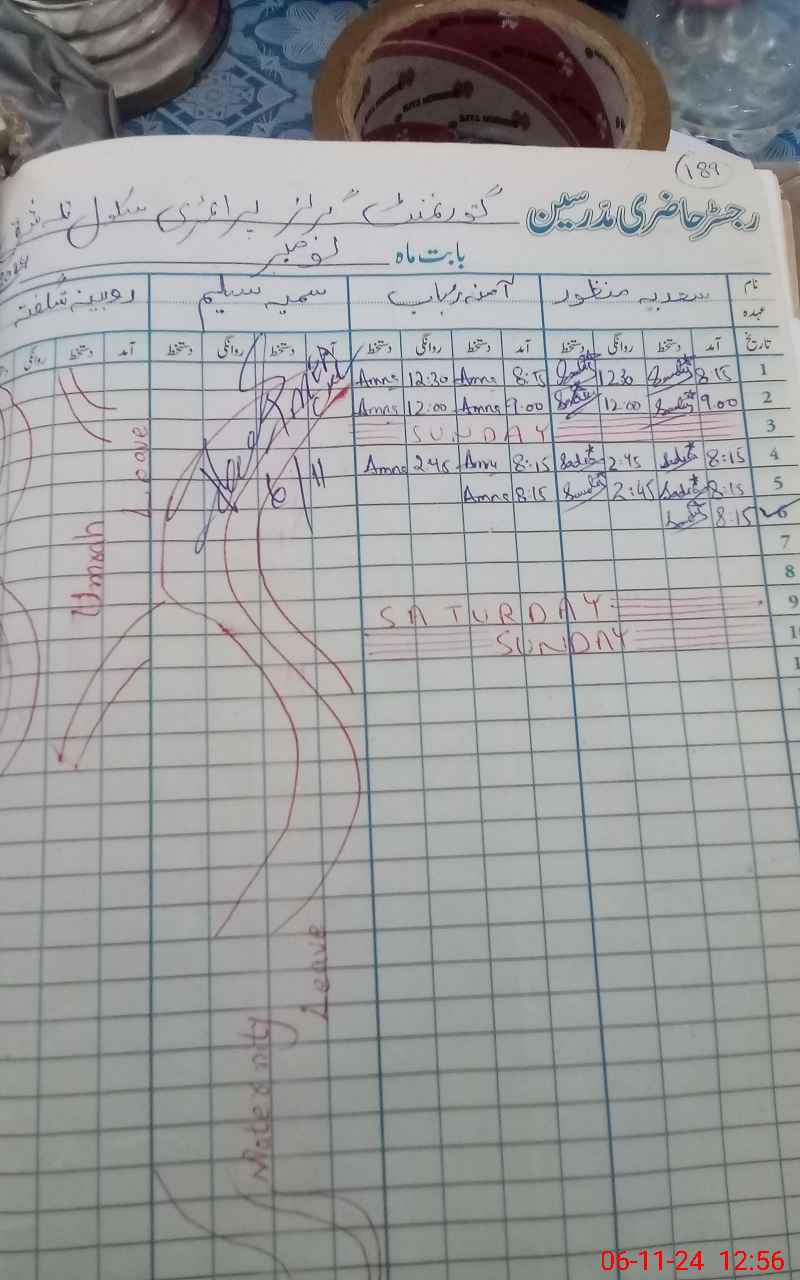 189
رجسٹر حاضری مدرسین گورنمنٹ گرلز پرائمری سکول
بابت ماہ نومبر
نام سعدیہ منظور آمنہ رباب سمیہ سلیم روبینہ شگفتہ
عہدہ
تاریخ آمد دستخط روانگی دستخط آمد دستخط روانگی دستخط آمد دستخط روانگی دستخط آمد دستخط روانگی
1 8:15 12:30 8:15 Amna 12:30 Amna
2 9:00 12:00 9:00 Amna 12:00 Amna
3 SUNDAY
4 8:15 Sadia 2:45 Sadia 8:15 Amna 2:45 Amna
5 8:15 Sadia 2:45 8:15 Amna
6 8:15
7
8
9 SATURDAY
10 SUNDAY
6/11
Umrah Leave
Maternity Leave
06-11-24 12:56